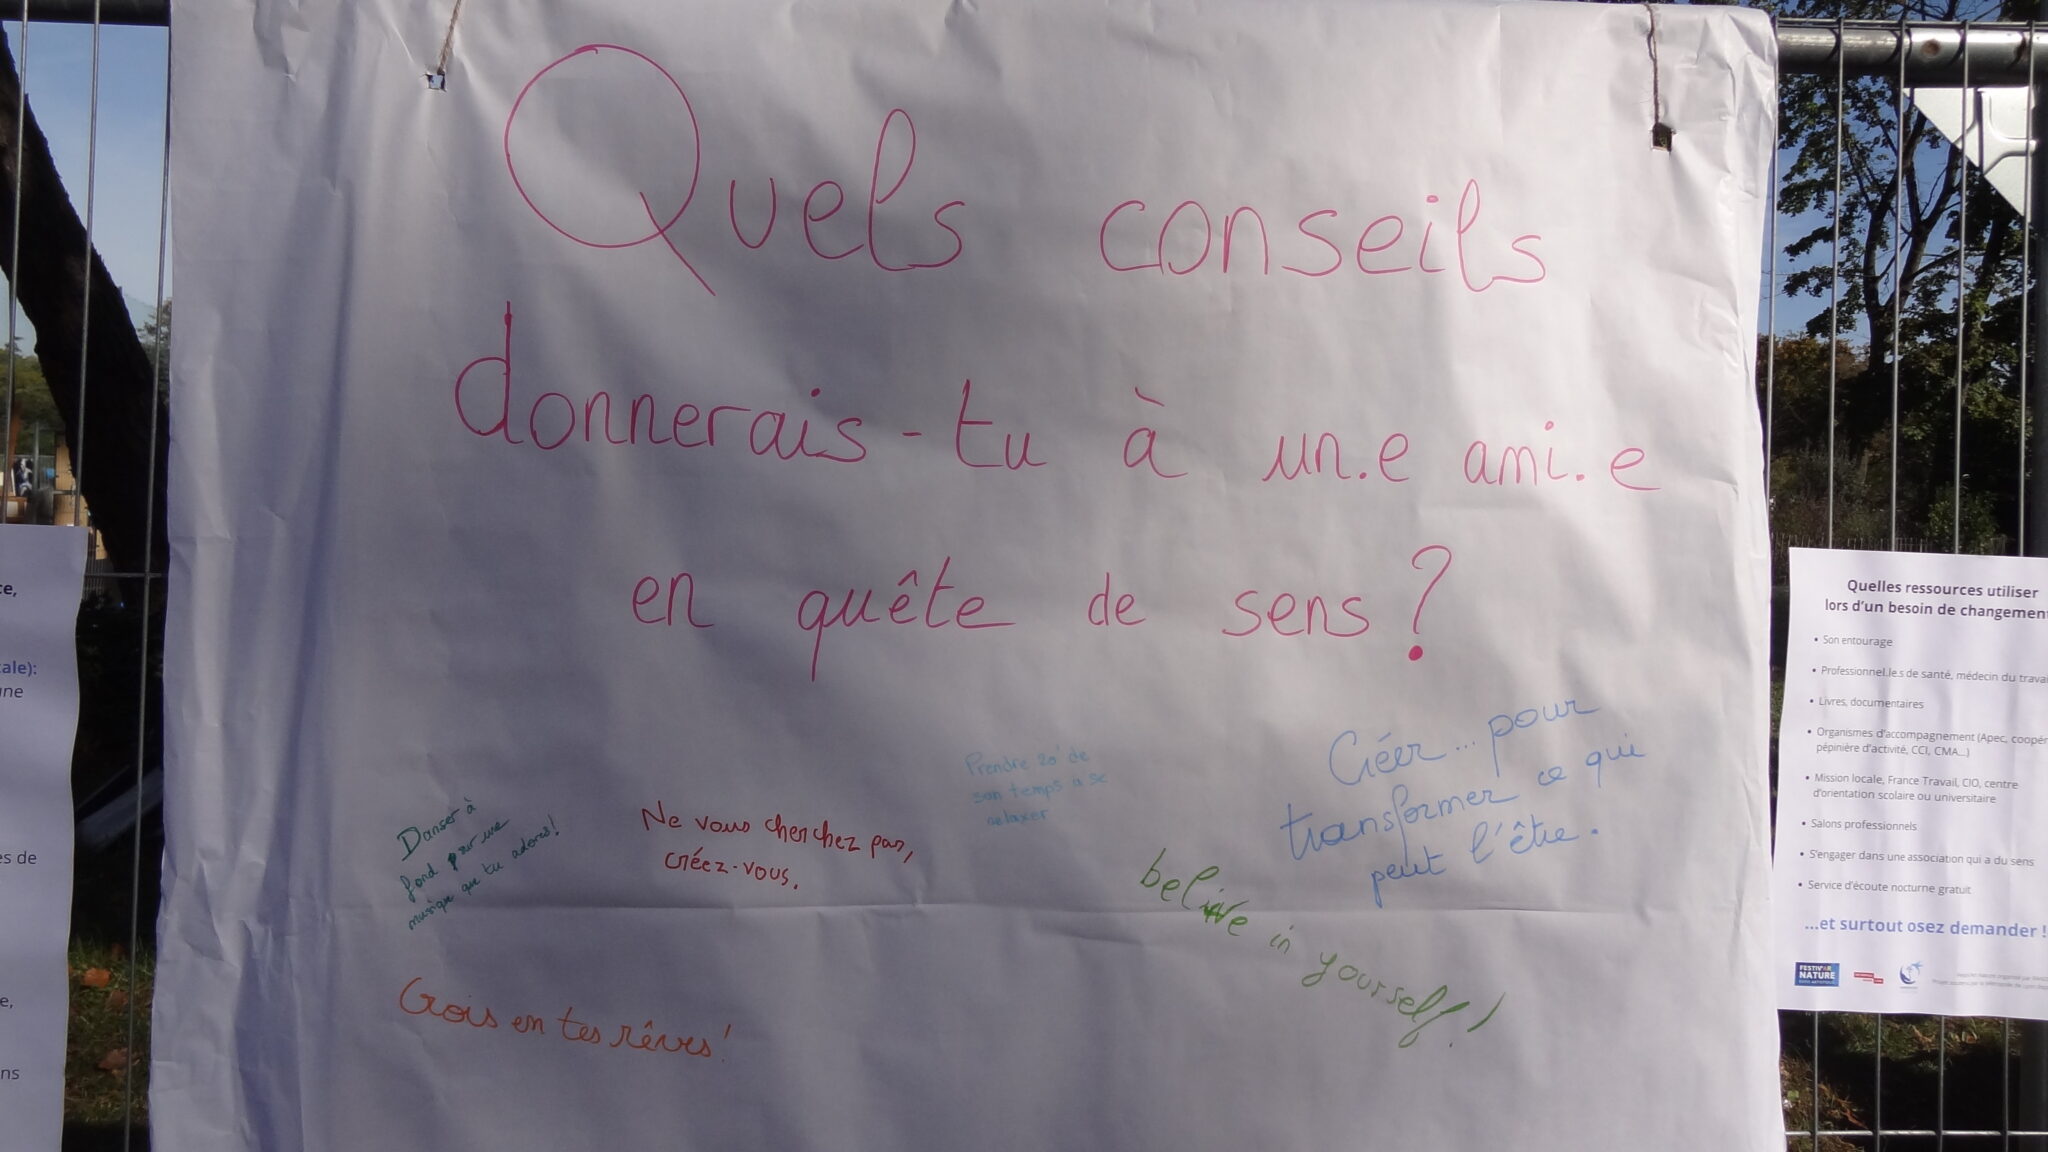 Quels conseils
donnerais-tu à un.e ami.e
en quête de sens ?
Créer... pour
transformer ce qui
peut l'être.
Prendre 20' de
son temps a se
relaxer
Danser à
fond sur une
musique que tu adores!
Ne vous cherchez pas,
créez-vous.
believe in yourself!
Crois en tes rêves!
ce,
cale):
une
es de
e,
ns
Quelles ressources utiliser
lors d'un besoin de changement
• Son entourage
• Professionnel.le.s de santé, médecin du travai
• Livres, documentaires
• Organismes d'accompagnement (Apec, coopér
pépinière d'activité, CCI, CMA...)
• Mission locale, France Travail, CIO, centre
d'orientation scolaire ou universitaire
• Salons professionnels
• S'engager dans une association qui a du sens
• Service d'écoute nocturne gratuit
...et surtout osez demander !
FESTIV'AR
NATURE